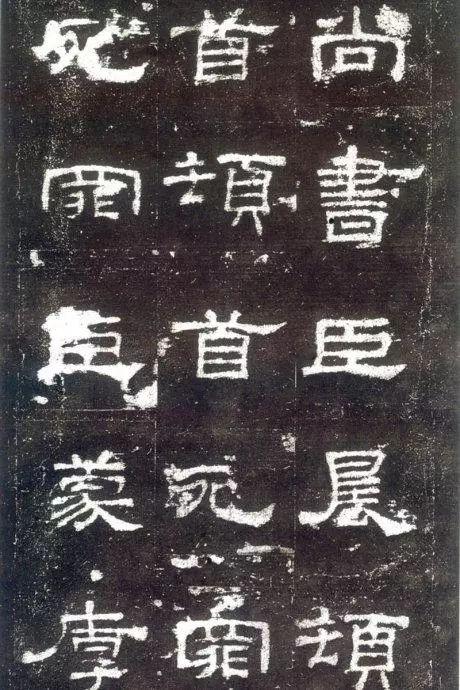 尚書臣晨頓
首頓首死罪
死罪臣蒙厚